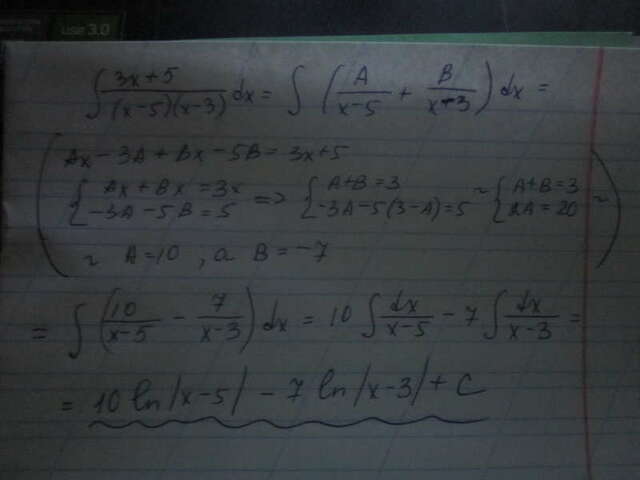 use 3.0
∫ (3x+5)/((x-5)(x-3)) dx = ∫ (A/(x-5) + B/(x-3)) dx =
Ax - 3A + Bx - 5B = 3x+5
{ Ax + Bx = 3x => { A+B = 3 ~ { A+B = 3
{ -3A - 5B = 5 { -3A - 5(3-A) = 5 { 2A = 20 ~
~ A = 10, а B = -7
= ∫ (10/(x-5) - 7/(x-3)) dx = 10 ∫ dx/(x-5) - 7 ∫ dx/(x-3) =
= 10 ln|x-5| - 7 ln|x-3| + C